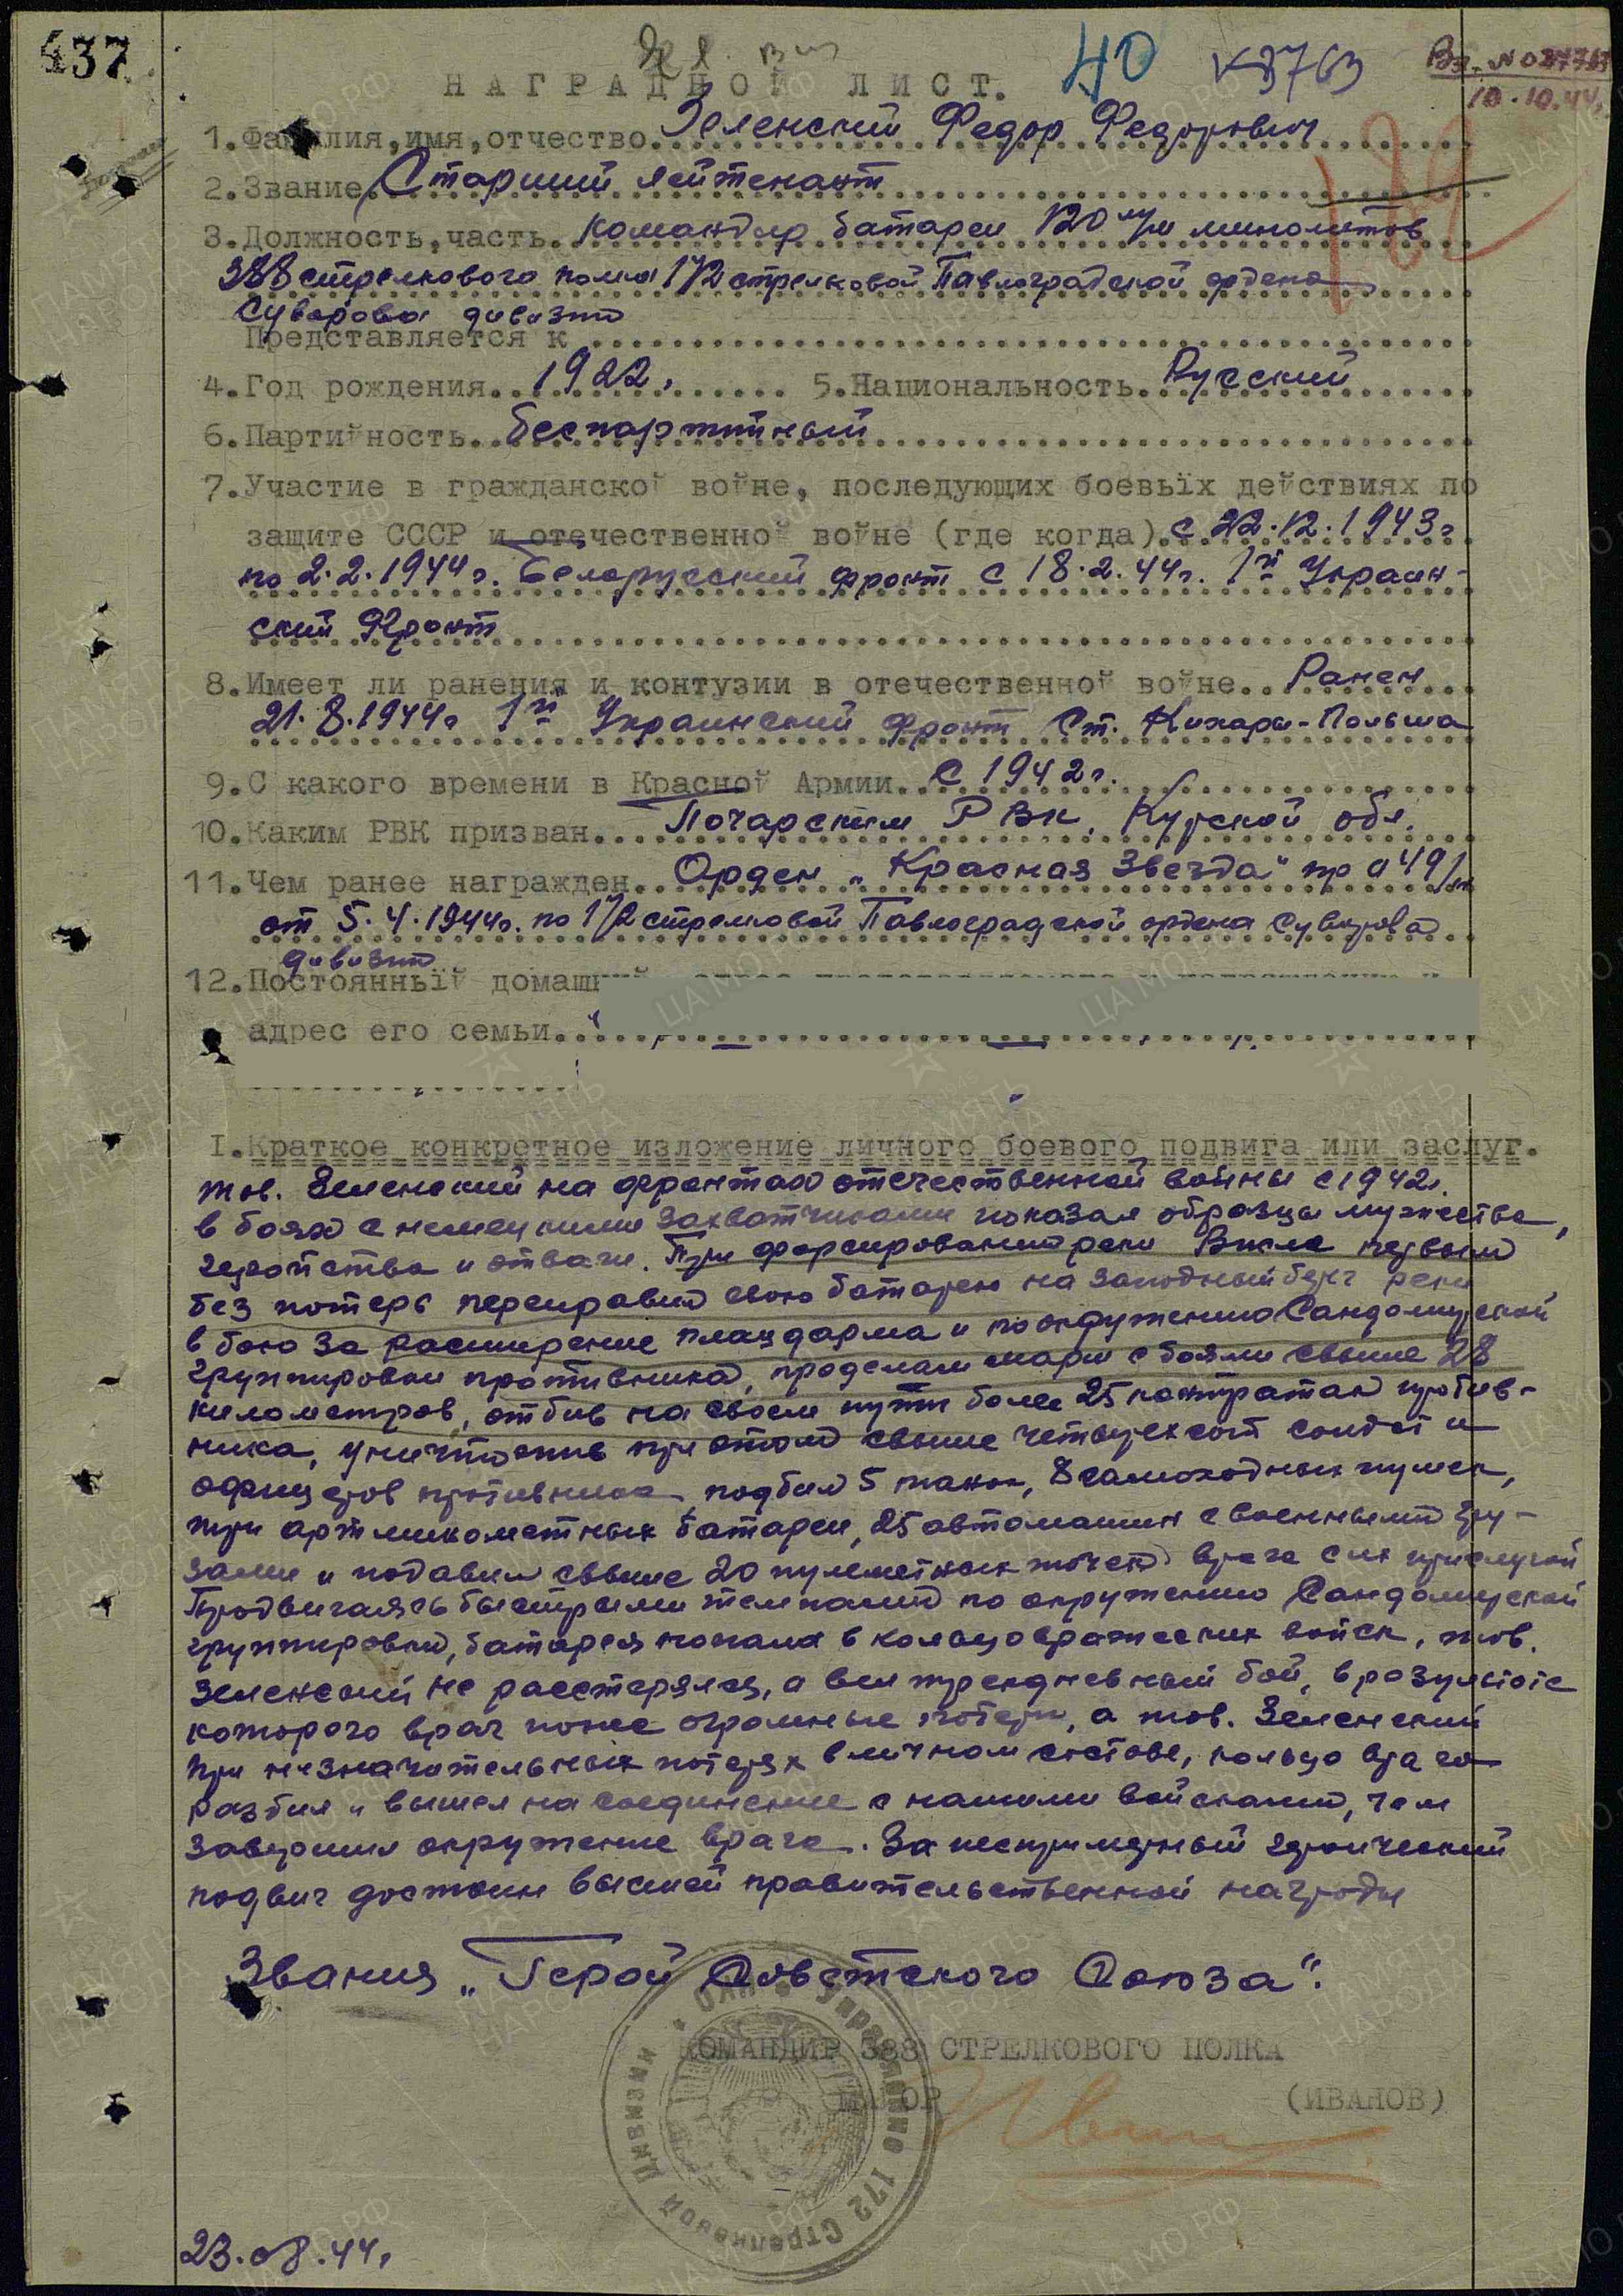 437
40 К3763
Вх. № 027763
10.10.44г.
НАГРАДНОЙ ЛИСТ.
1.Фамилия,имя,отчество. Зеленский Федор Федорович
2.Звание. Старший лейтенант
3.Должность,часть. командир батареи 120 м/м минометов
388 стрелкового полка 172 стрелковой Павлоградской ордена
Суворова дивизии
Представляется к
4.Год рождения. 1922. 5.Национальность. Русский
6.Партийность. беспартийный
7.Участие в гражданской войне, последующих боевых действиях по
защите СССР и отечественной войне (где когда). с 22.12.1943г
по 2.2.1944г. Белорусский фронт с 18.2.44г. 1й Украин-
ский Фронт
8.Имеет ли ранения и контузии в отечественной войне. Ранен
21.8.1944г 1й Украинский фронт Ст. Кихары-Польша
9.С какого времени в Красной Армии. С 1942г.
10.Каким РВК призван. РВК, Курской обл.
11.Чем ранее награжден. Орден „Красная Звезда" пр 049/н
от 5.4.1944г. по 172 стрелковой Павлоградской ордена Суворова
дивизии
12.Постоянный домашн
адрес его семьи.
I.Краткое конкретное изложение личного боевого подвига или заслуг.
тов. Зеленский на фронтах отечественной войны с 1942г.
в боях с немецкими захватчиками показал образцы мужества,
геройства и отваги. При форсировании реки Висла первым
без потерь переправил свою батарею на западный берег реки
в бою за расширение плацдарма и по окружению Сандомирской
группировки противника, проделал марш с боями свыше 28
километров, отбив на своем пути более 25 контратак против-
ника, уничтожив при этом свыше четырехсот солдат и
офицеров противника, подбил 5 танок, 8 самоходных пушек,
три арт минометных батареи, 25 автомашин с военными гру-
зами и подавил свыше 20 пулеметных точек врага с их прислугой
Продвигаясь быстрыми темпами по окружению Сандомирской
группировки, батарея попала в кольцо вражеских войск, тов.
Зеленский не расстерялся, а вел трехдневный бой, в результате
которого враг понес огромные потери, а тов. Зеленский
при незначительных потерях в личном составе, кольцо врага
разбил и вышел на соединение с нашими войсками, чем
завершил окружение врага. За беспримерный героический
подвиг достоин высшей правительственной награды
Звания „Герой Советского Союза".
КОМАНДИР 388 СТРЕЛКОВОГО ПОЛКА
МАЙОР (ИВАНОВ)
Управление 172 Стрелковой Дивизии
23.08.44г.